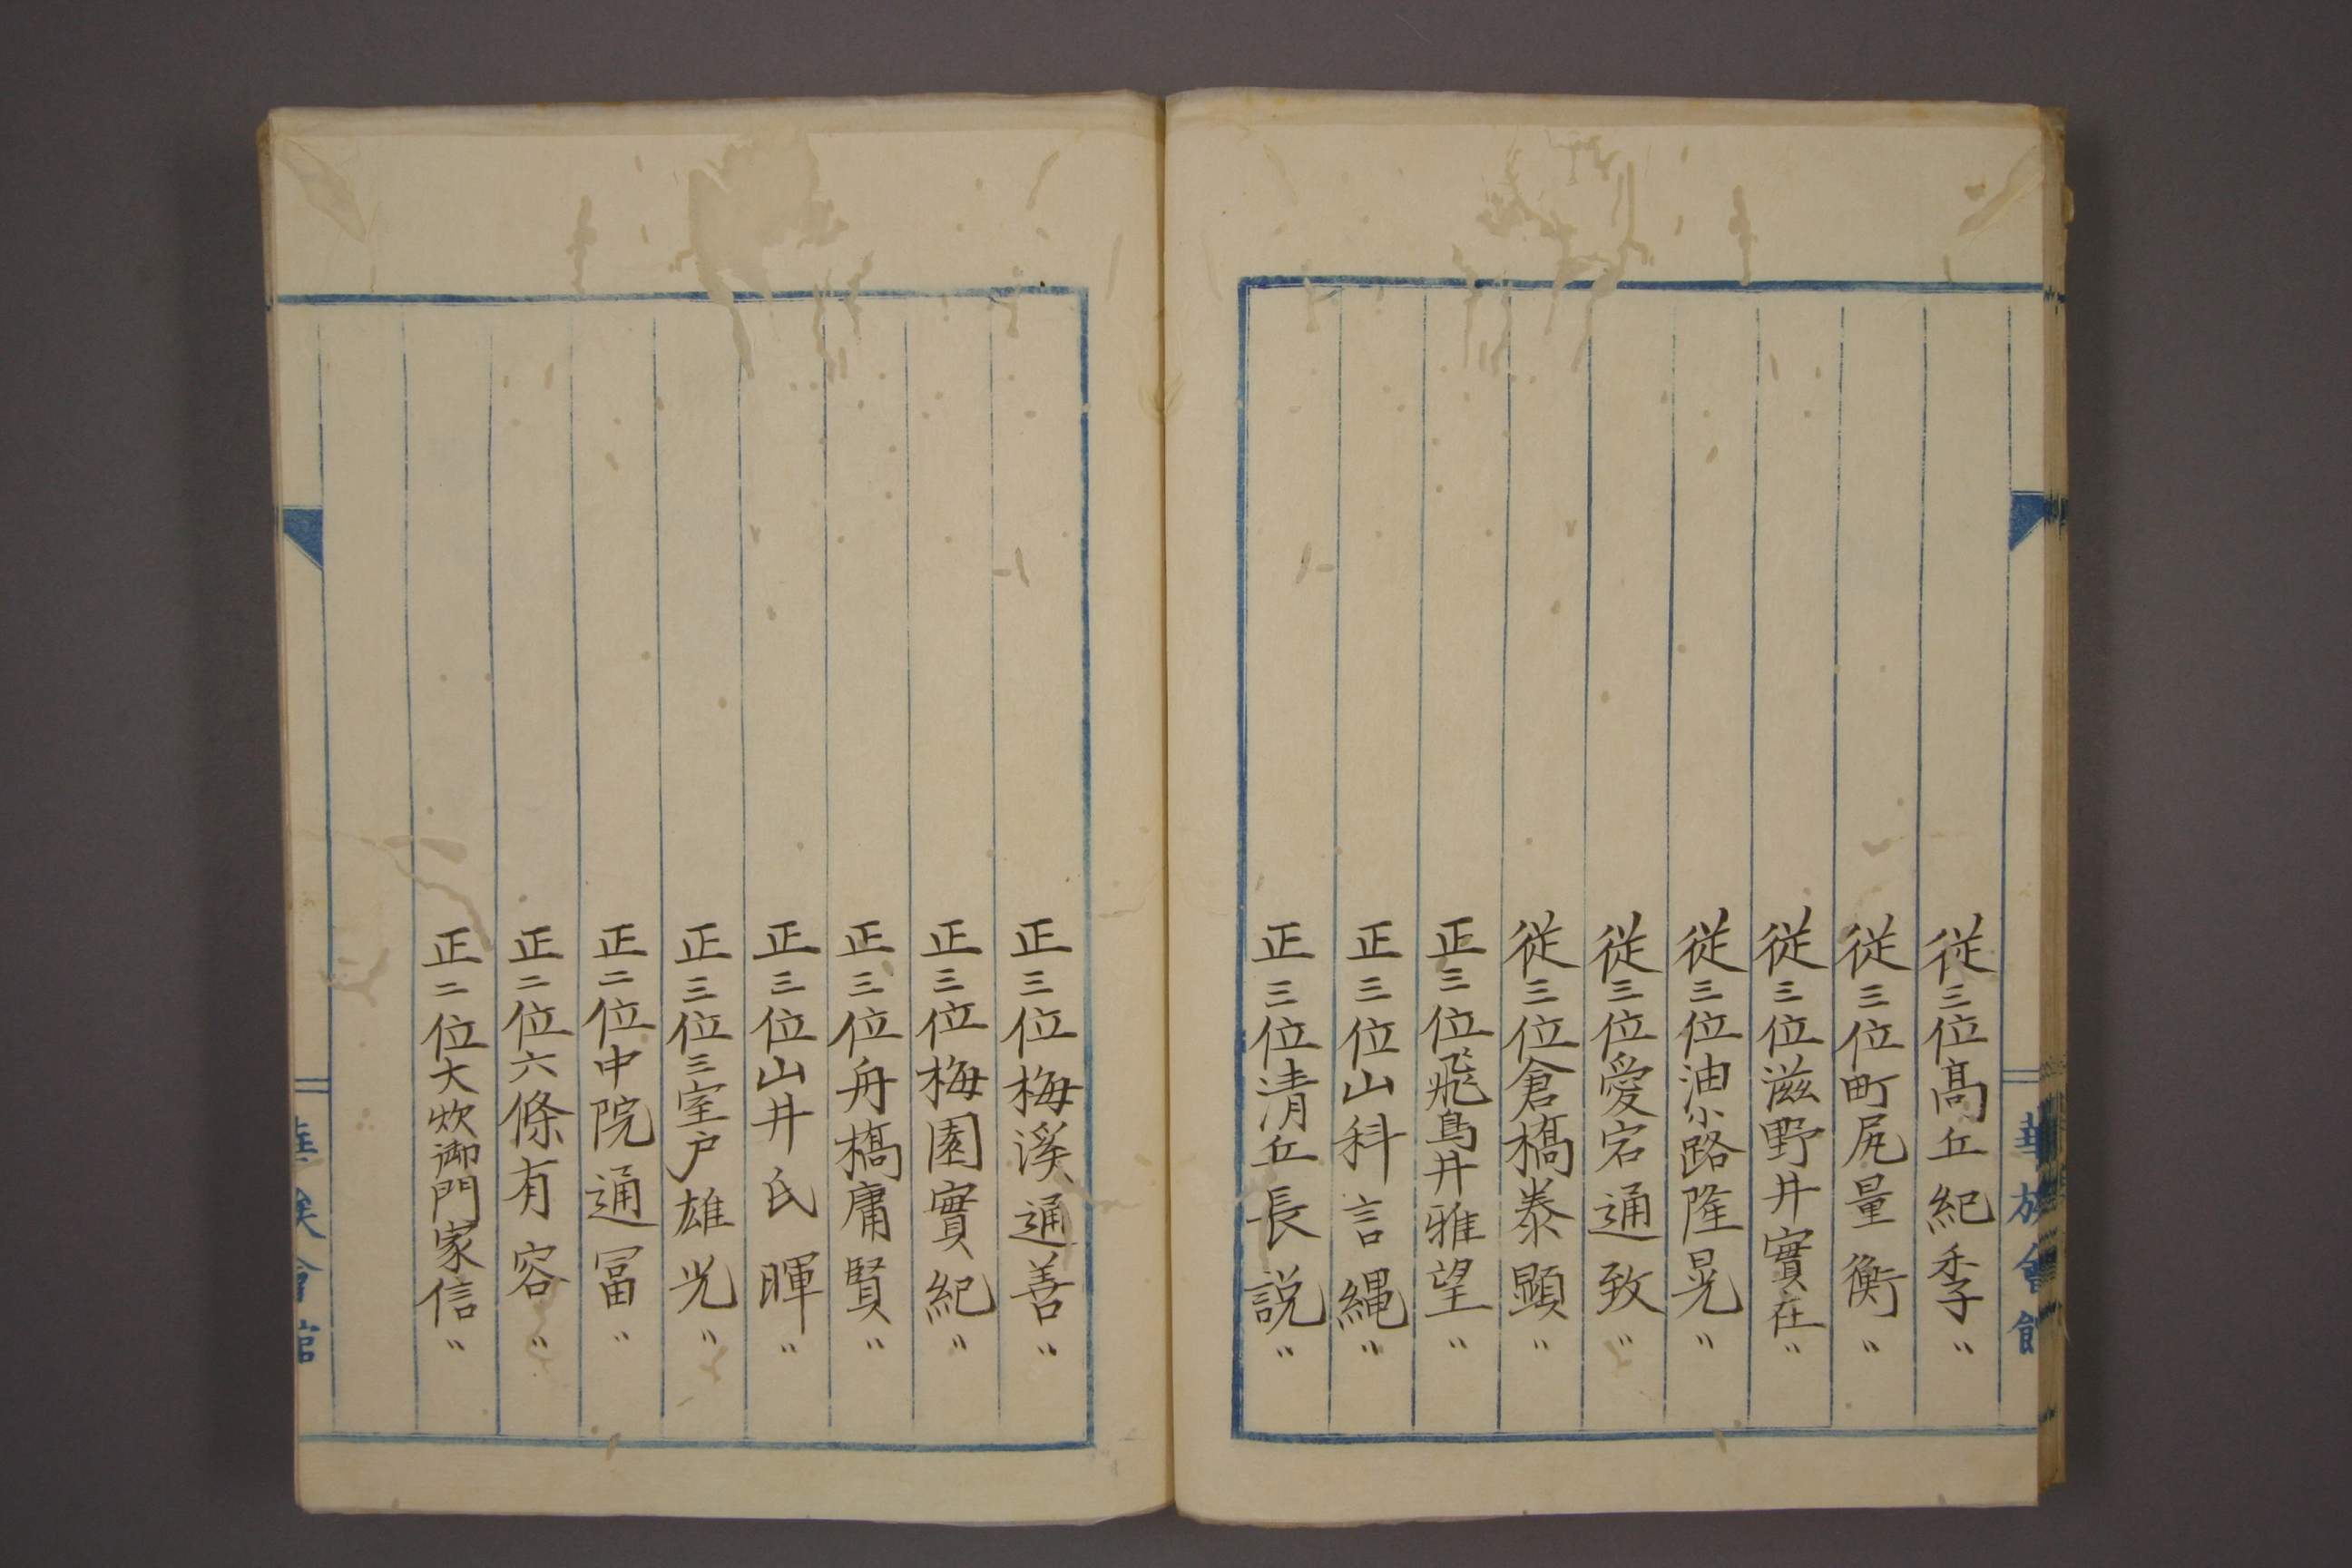 華族會館
從三位髙丘紀季〃
從三位町尻量衡〃
從三位滋野井實在〃
從三位油小路隆晃〃
從三位愛宕通致〃
從三位倉橋泰顯〃
正三位飛鳥井雅望〃
正三位山科言縄〃
正三位清丘長説〃
正三位梅溪通善〃
正三位梅園實紀〃
正三位舟橋庸賢〃
正三位山井氏暉〃
正三位三室户雄光〃
正二位中院通冨〃
正二位六條有容〃
正二位大炊御門家信〃
華族會館